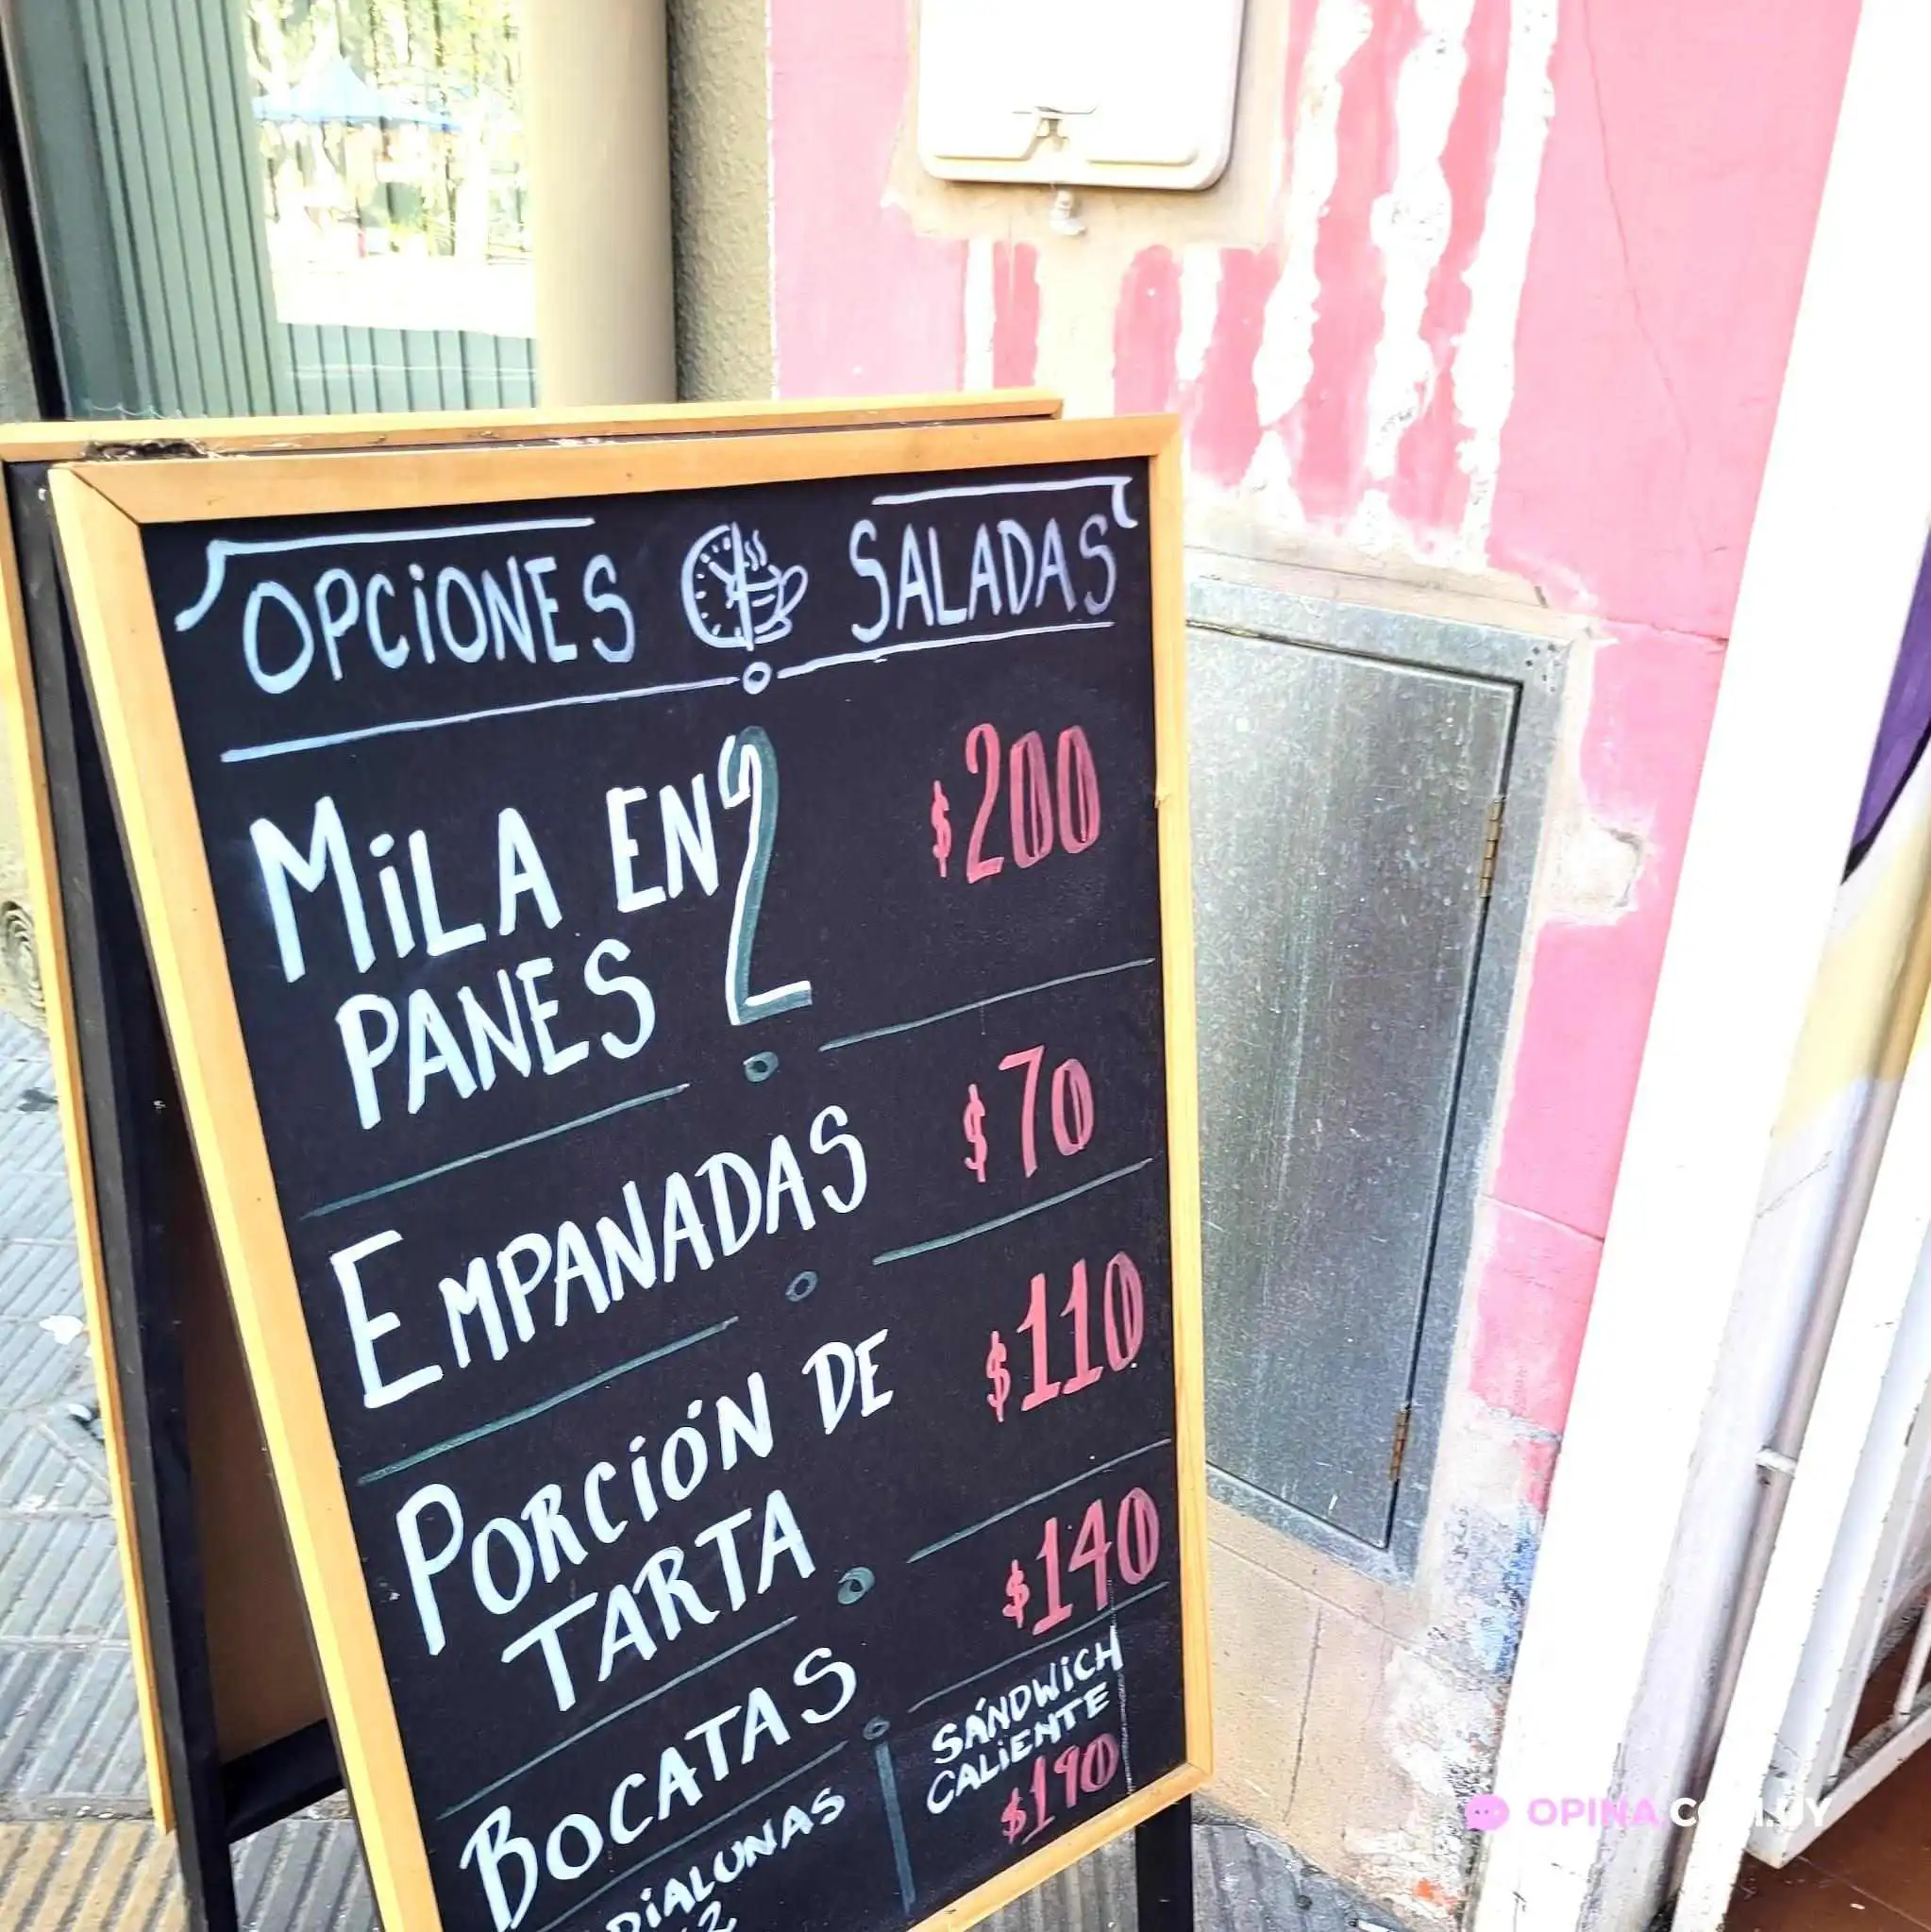 OPCIONES SALADAS
MILA EN 2
PANES
$200
EMPANADAS $70
PORCIÓN DE
TARTA
$110
BOCATAS $140
SÁNDWICH
CALIENTE
$190
OPINA.COM.UY